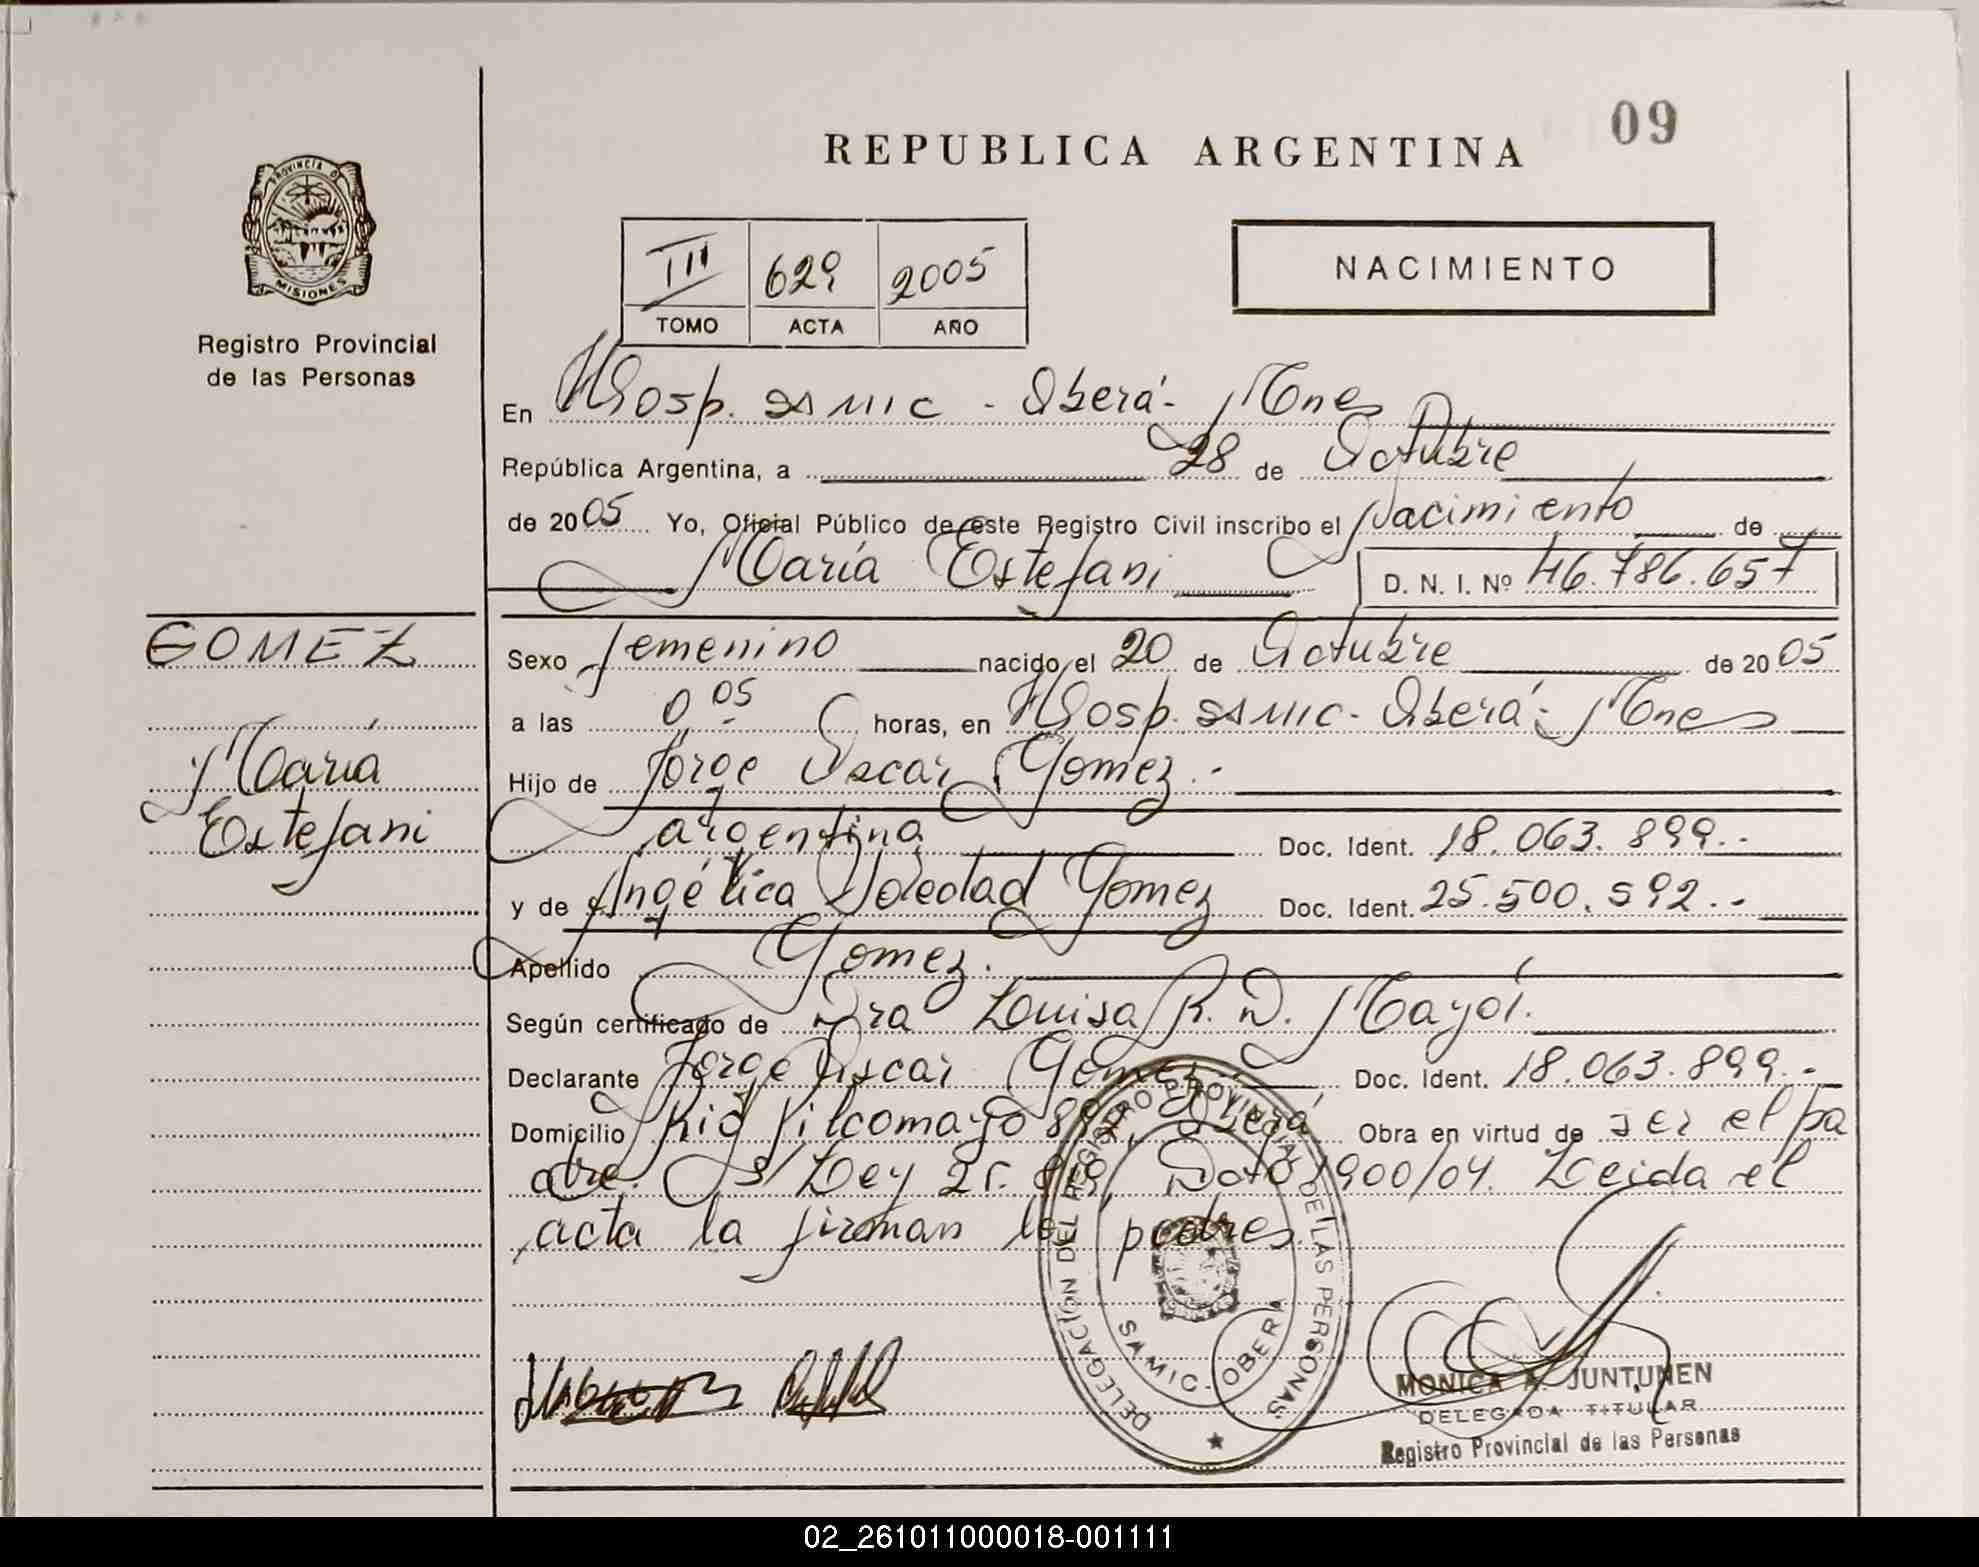 09
REPUBLICA ARGENTINA
PROVINCIA D
MISIONES
Registro Provincial
de las Personas
III 629 2005
TOMO ACTA AÑO
NACIMIENTO
En Hosp. SAMIC - Oberá - Mnes
República Argentina, a 28 de Octubre
de 2005 Yo, Oficial Público de este Registro Civil inscribo el Nacimiento de
María Estefani D. N. I. Nº 46.786.657
GOMEZ
María
Estefani
Sexo femenino nacido el 20 de Octubre de 2005
a las 0 05 horas, en Hosp. SAMIC - Oberá - Mnes
Hijo de Jorge Oscar Gomez.-
argentina Doc. Ident. 18.063.899.-
y de Angélica Soledad Gomez Doc. Ident. 25.500.592.-
Apellido Gomez.
Según certificado de Dra Luisa R. D. Mayol.
Declarante Jorge Oscar Gomez Doc. Ident. 18.063.899.-
Domicilio Rio Pilcomayo 892, Oberá Obra en virtud de ser el pa
dre. S/ Ley Dcto 1900/04. Leida el
acta la firman los padres.
DELEGACION DEL REGISTRO PROVINCIAL DE LAS PERSONAS
SAMIC - OBERA
MONICA A. JUNTUNEN
DELEGADA TITULAR
Registro Provincial de las Personas
02_261011000018-001111